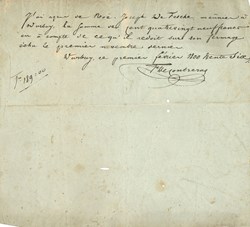 J'ai reçu de Dose Joseph De Fresne, meunier à
Durbuy, la somme de cent quatre vingt neuf francs
en à compte de ce qu'il redoit sur son fermage
échu le premier novembre dernier
Durbuy, ce premier février 1800 trente six
F 189-00